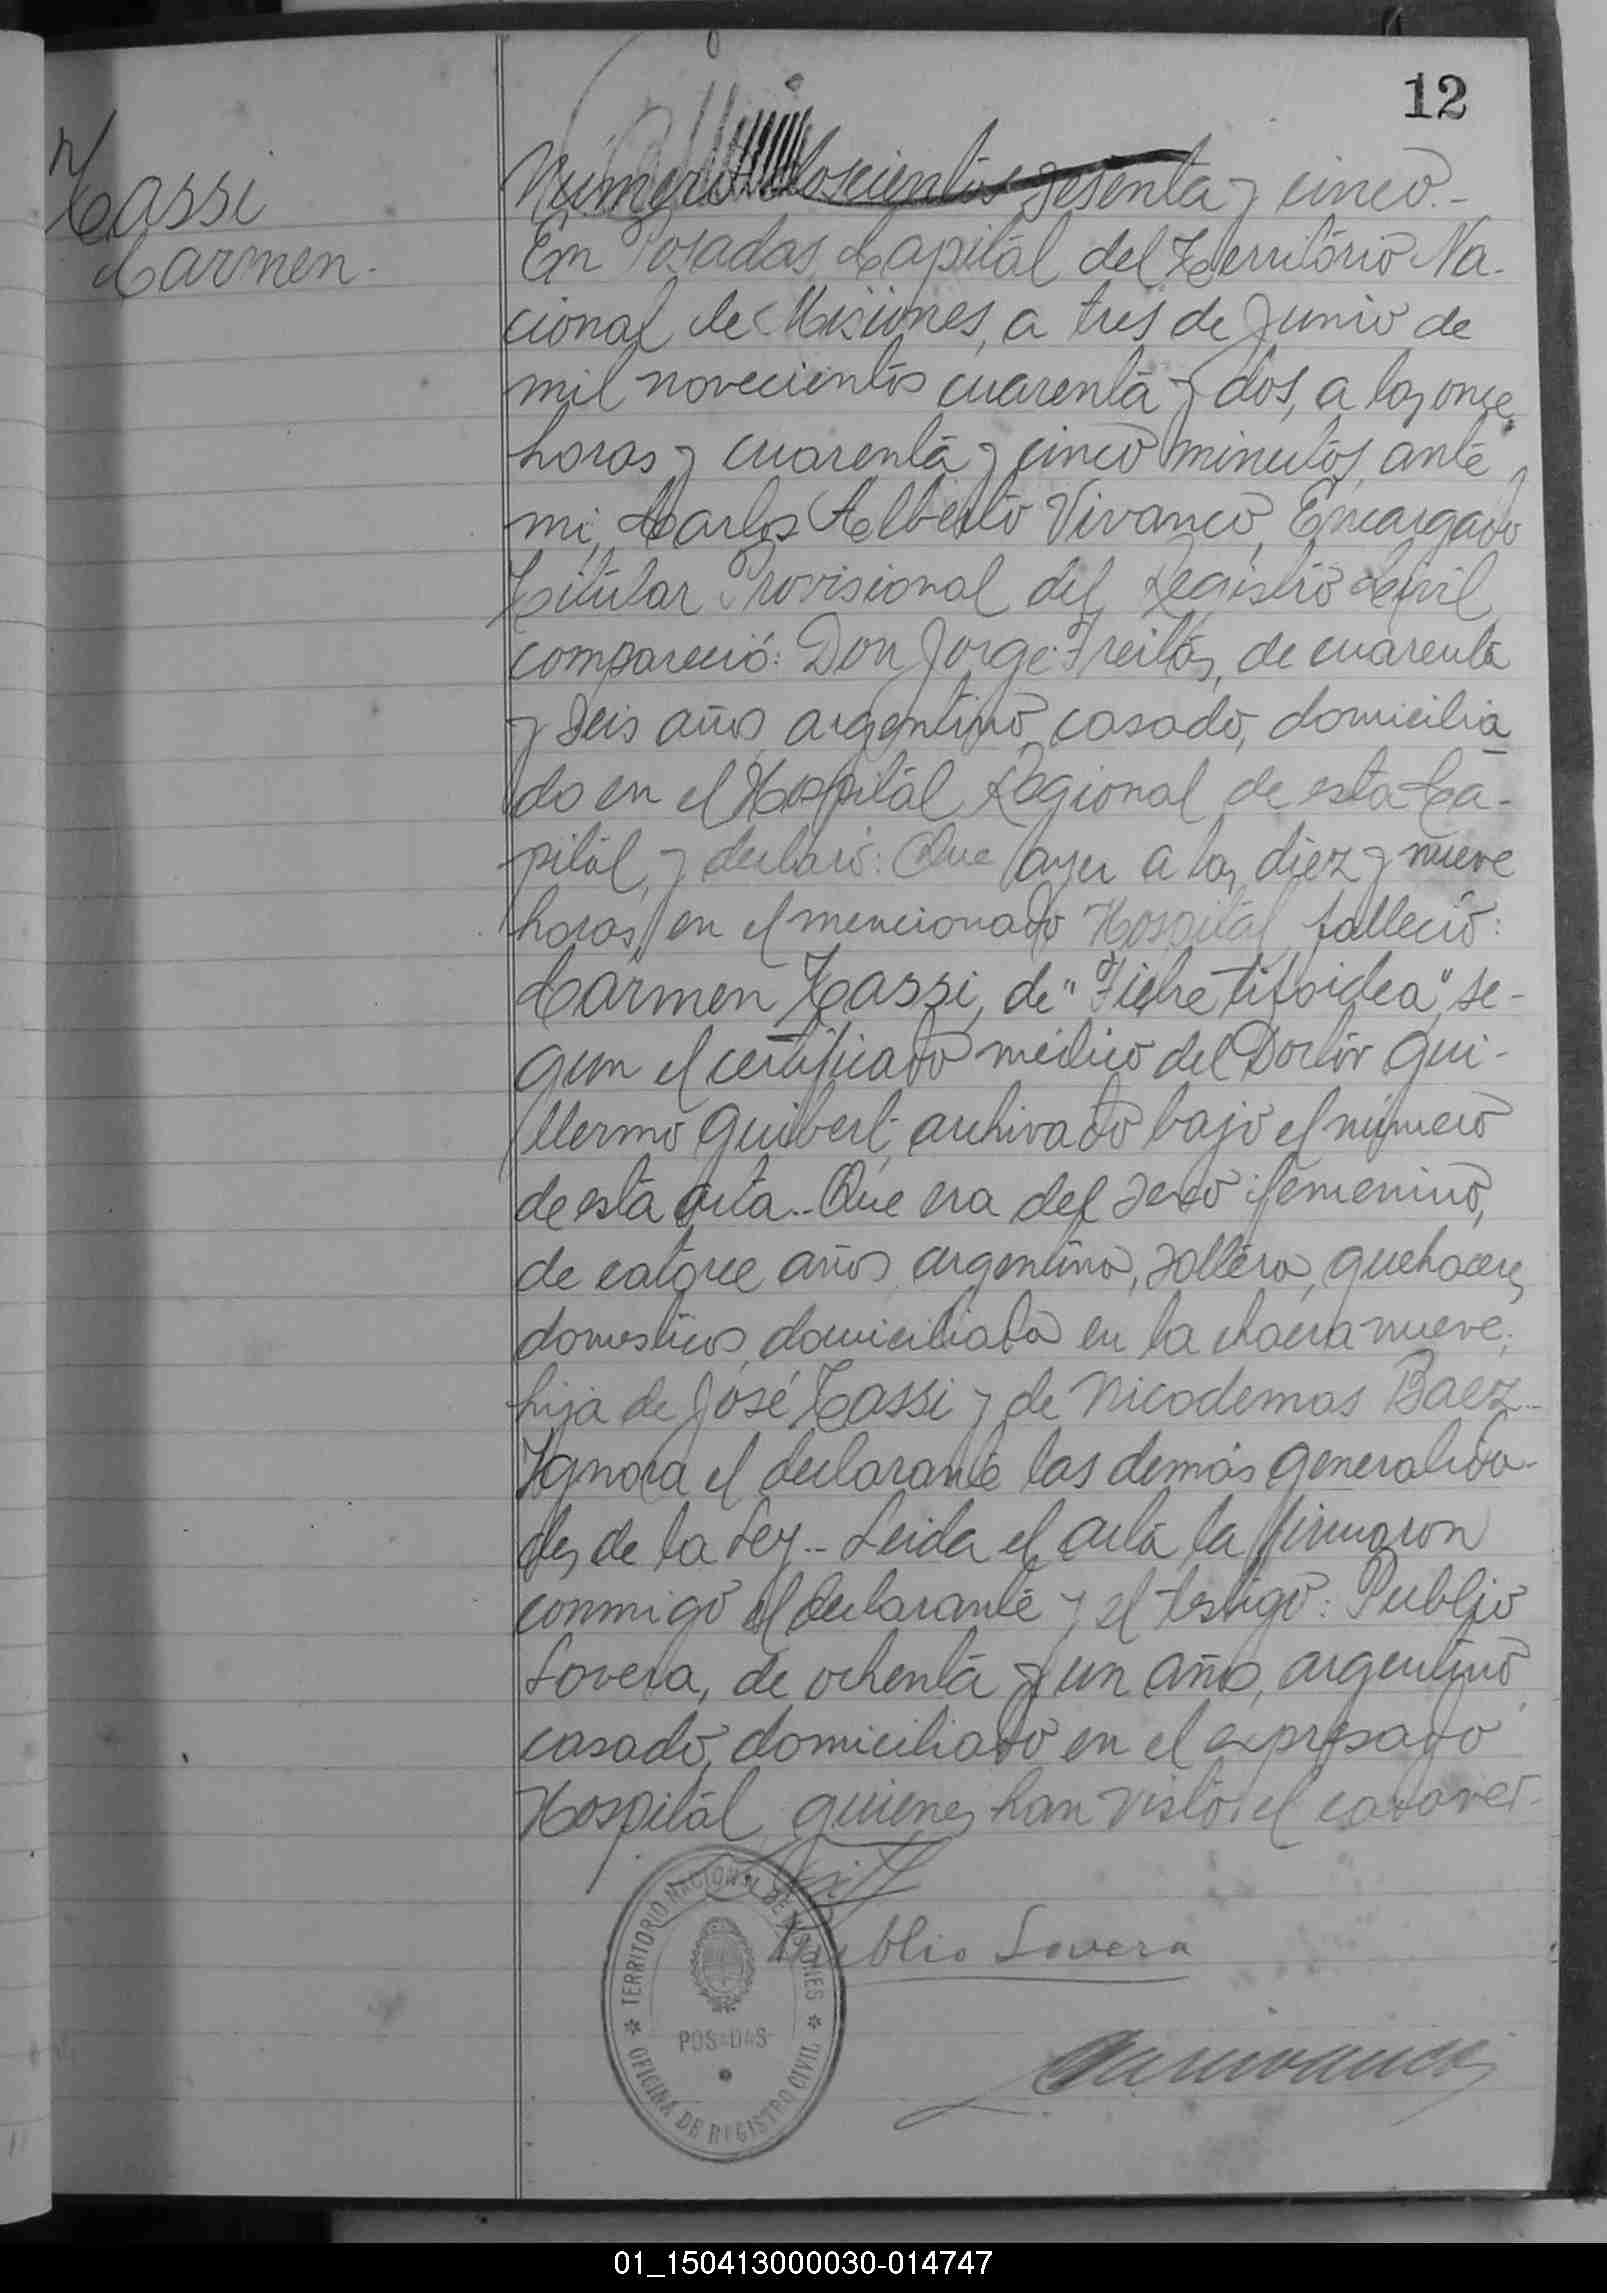 12
Tassi
Carmen.
Número doscientos sesenta y cinco.-
En Posadas, Capital del Territorio Na-
cional de Misiones, a tres de Junio de
mil novecientos cuarenta y dos, a las once
horas y cuarenta y cinco minutos, ante
mi, Carlos Alberto Vivanco, Encargado
Titular Provisional del Registro Civil,
compareció: Don Jorge Freitas, de cuarenta
y seis años, argentino, casado, domicilia
do en el Hospital Regional de esta Ca-
pital, y declaró: Que ayer a las diez y nueve
horas, en el mencionado Hospital, falleció:
Carmen Tassi, de "Fiebre tifoidea", se-
gun el certificado médico del Doctor Gui-
llermo Guibert, archivado bajo el número
de esta acta.. Que era del sexo femenino,
de catorce años, argentina, soltera, quehaceres
domesticos, domiciliada en la chacra nueve;
hija de José Tassi y de Nicodemas Baez..
Ignora el declarante las demás generalida-
des de la Ley.. Leida el acta la firmaron
conmigo el declarante y el testigo: Publio
Lovera, de ochenta y un año, argentino,
casado, domiciliado en el expresado
Hospital, quienes han visto el cadaver.-
Publio Lovera
TERRITORIO NACIONAL DE MISIONES
POSADAS
OFICINA DE REGISTRO CIVIL
01_150413000030-014747